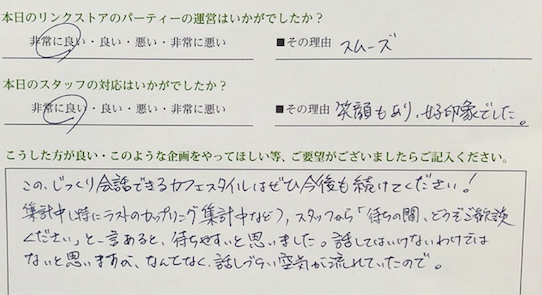 本日のリンクストアのパーティーの運営はいかがでしたか？
非常に良い・良い・悪い・非常に悪い ■その理由 スムーズ
本日のスタッフの対応はいかがでしたか？
非常に良い・良い・悪い・非常に悪い ■その理由 笑顔もあり、好印象でした。
こうした方が良い・このような企画をやってほしい等、ご要望がございましたらご記入ください。
この、じっくり会話できるカフェスタイルはぜひ今後も続けてください！
集計中（特にラストのカップリング集計中など）、スタッフから「待ちの間、どうぞご歓談
ください」と一言あると、待ちやすいと思いました。話してはいけないわけでは
ないと思いますが、なんとなく、話しづらい空気が流れていたので。